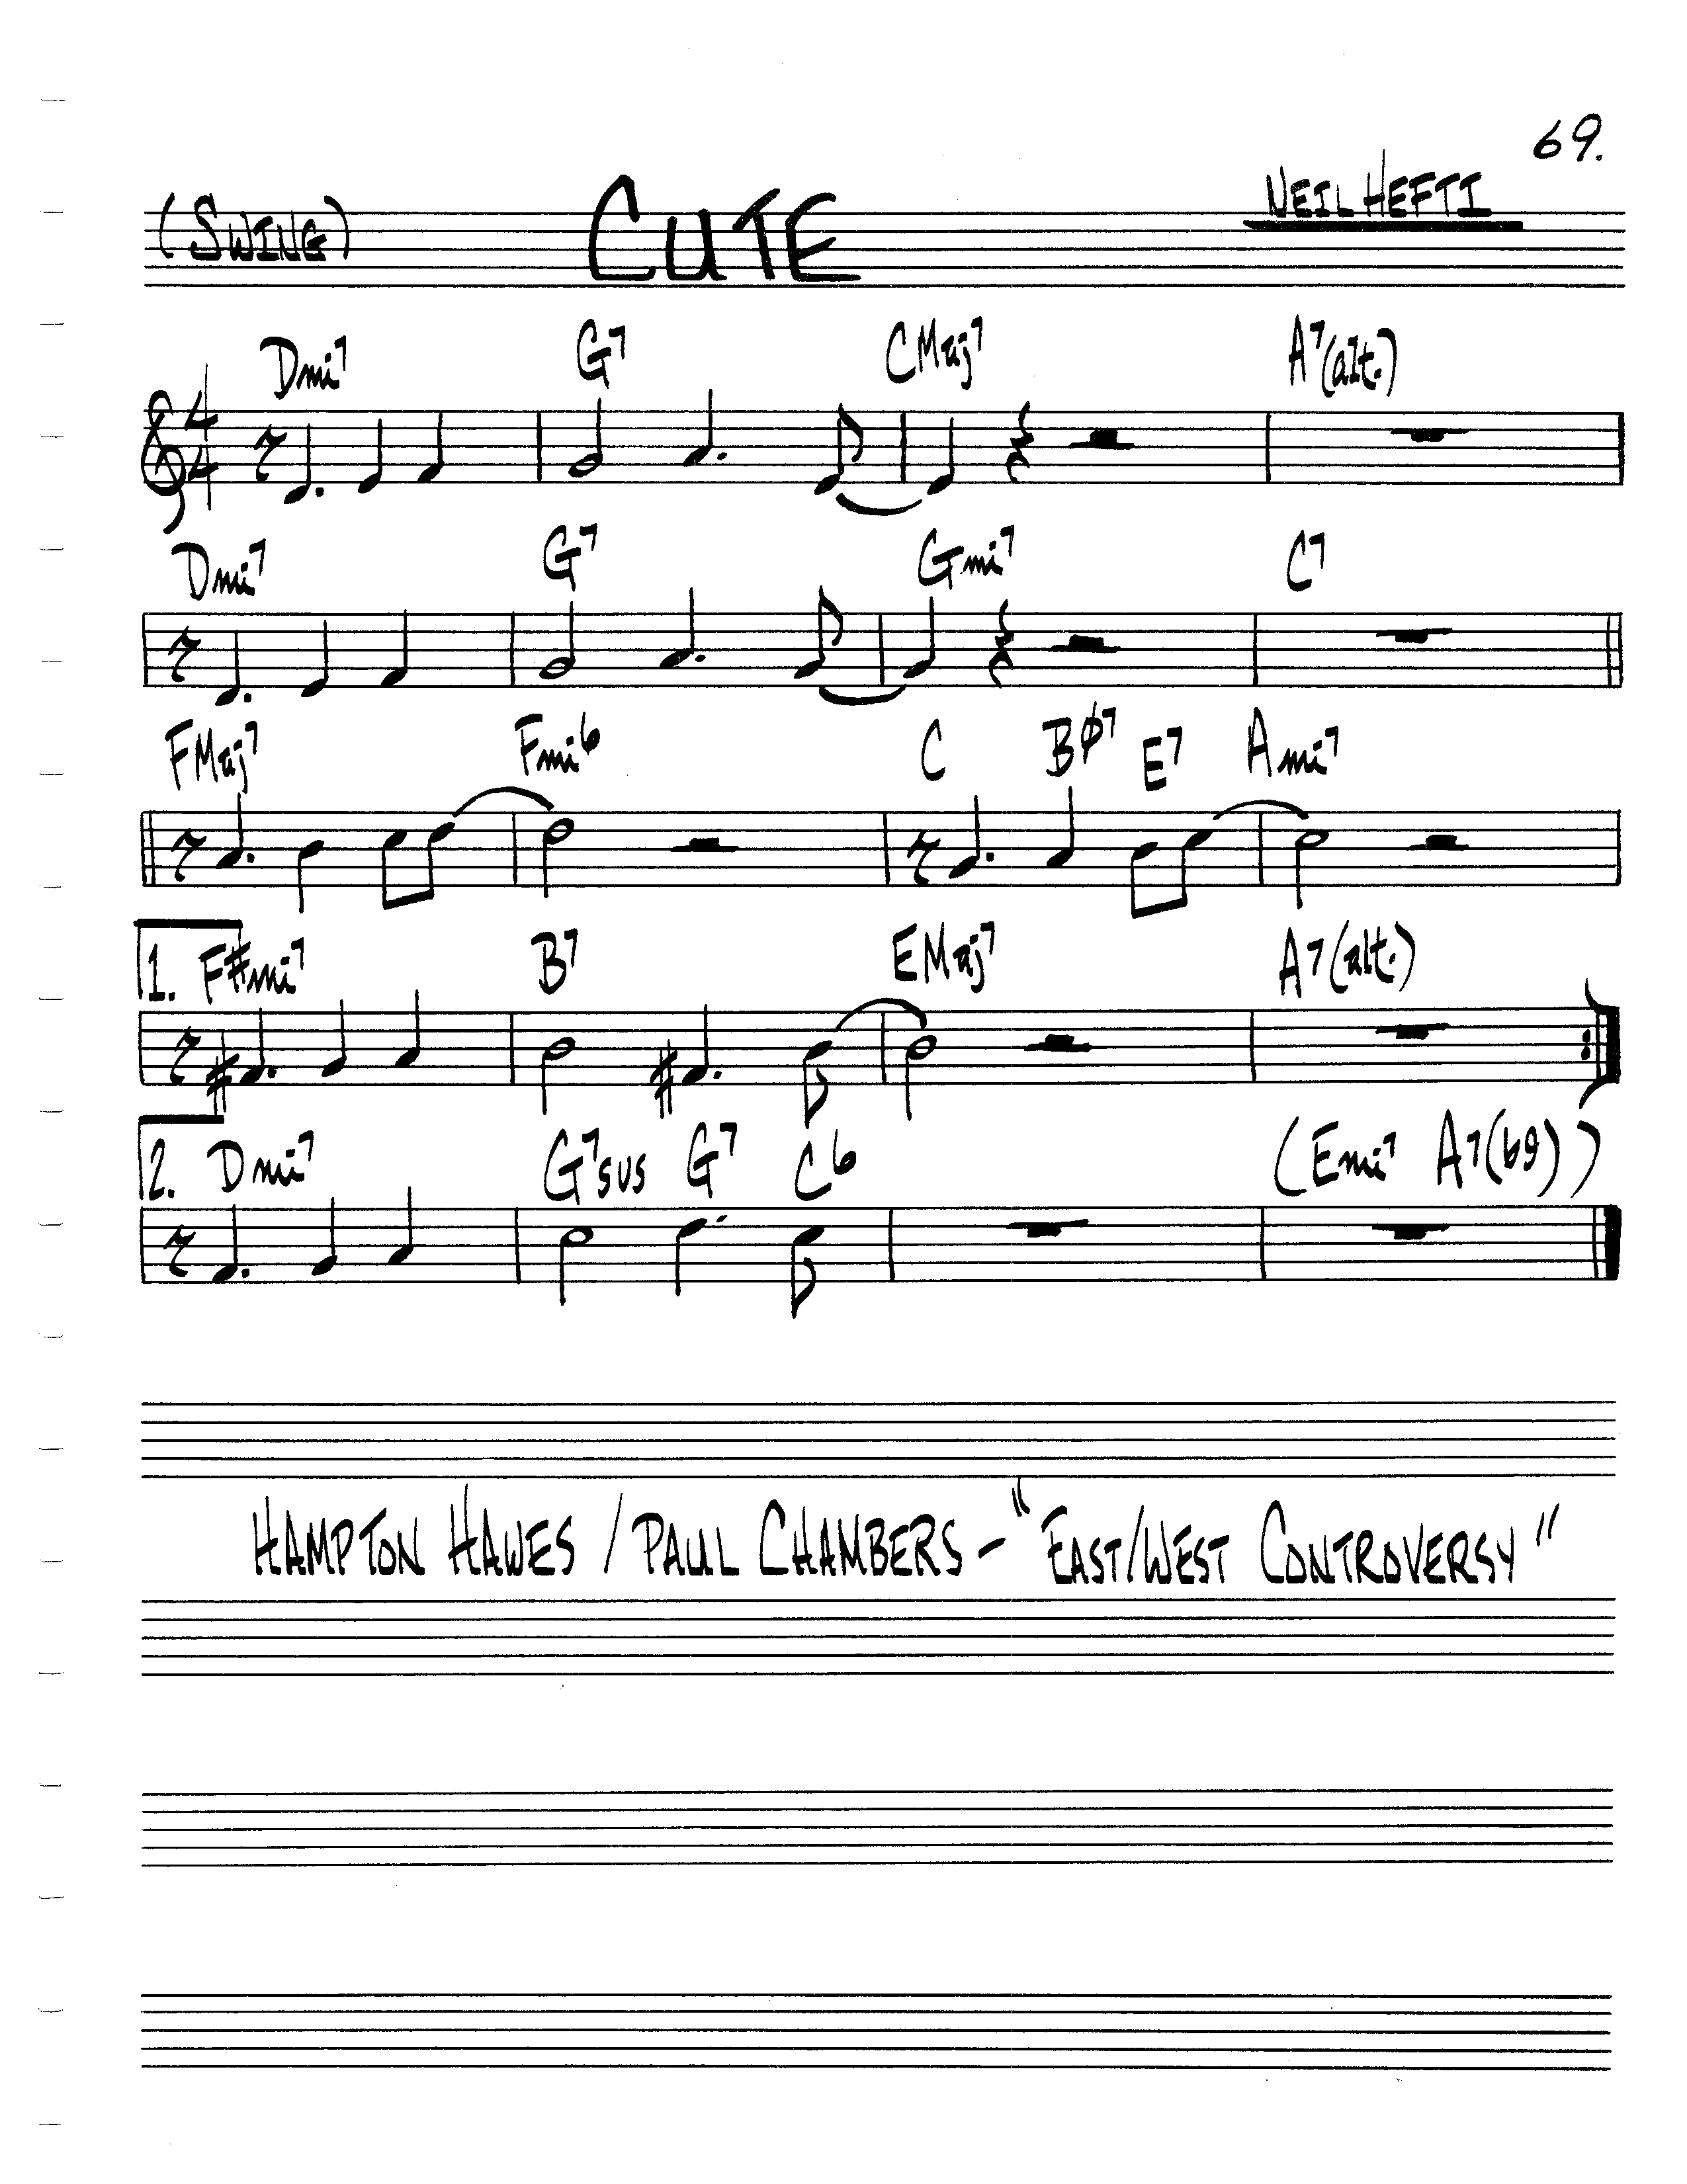 69.
(SWING) CUTE NEIL HEFTI
Dmi7 G7 CMaj7 A7(alt.)
4
4
Dmi7 G7 Gmi7 C7
FMaj7 Fmi6 C Bø7 E7 Ami7
1. F#mi7 B7 EMaj7 A7(alt.)
2. Dmi7 G7sus G7 C6 (Emi7 A7(b9))
HAMPTON HAWES / PAUL CHAMBERS - "EAST/WEST CONTROVERSY"